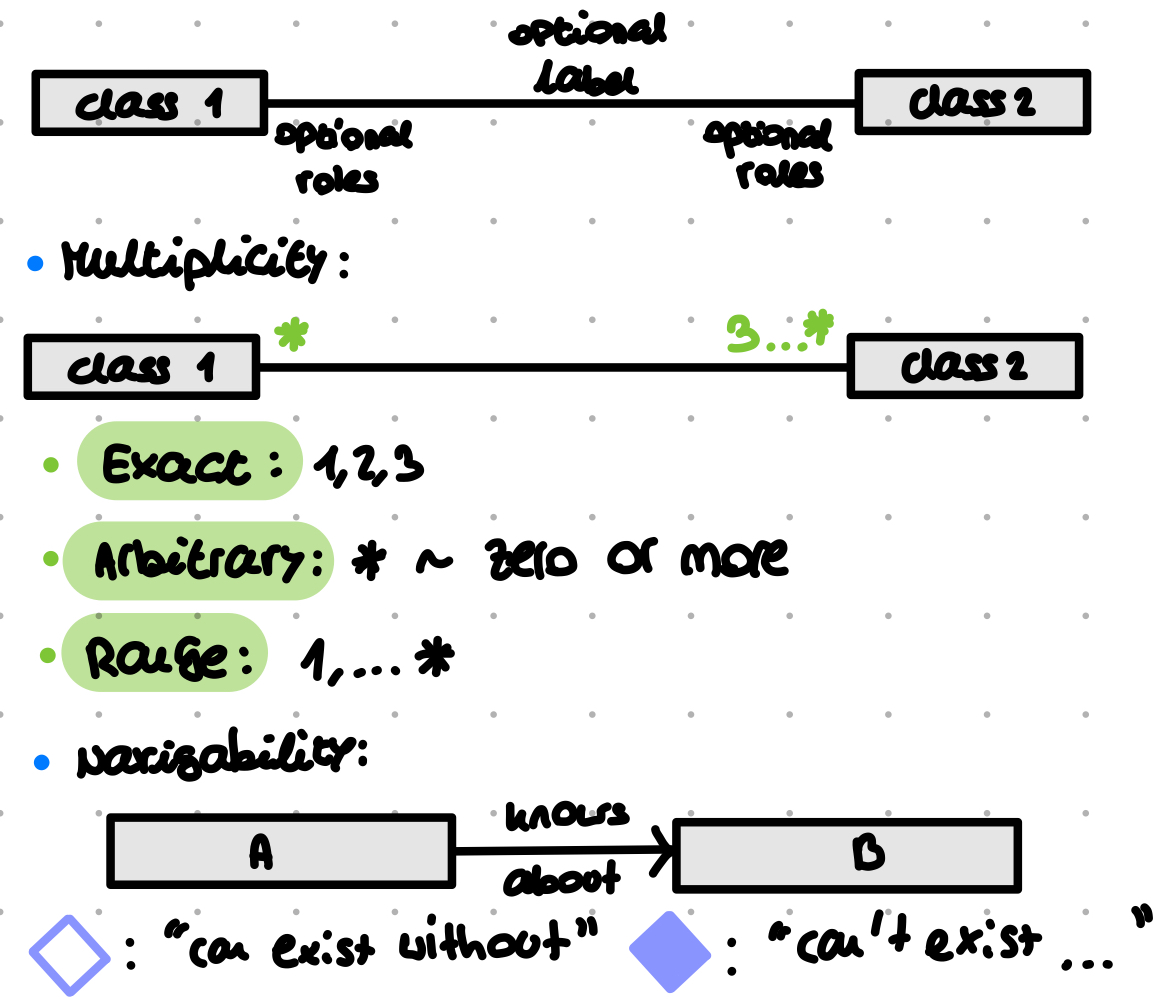 optional
label
class 1
class 2
optional
roles
optional
roles
• Multiplicity:
* 3...*
class 1
class 2
• Exact: 1,2,3
• Arbitrary: * ~ zero or more
• Range: 1,... *
• Navigability:
knows
A
B
about
: "can exist without"
: "can't exist ... "